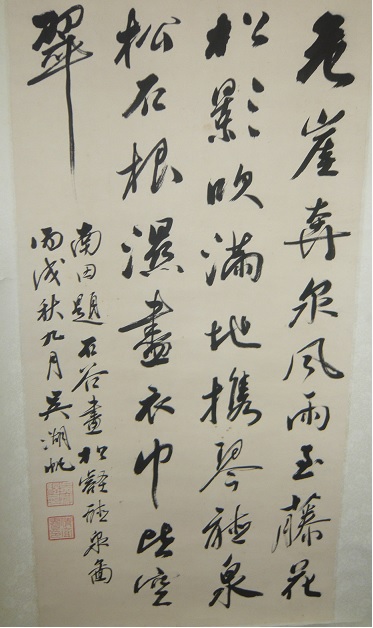 危崖奔泉風雨至藤花
松影吹滿地攜琴聽泉
松石根濕盡衣巾此空
翠
南田題石谷畫松壑聽泉圖
丙戌秋九月吳湖帆